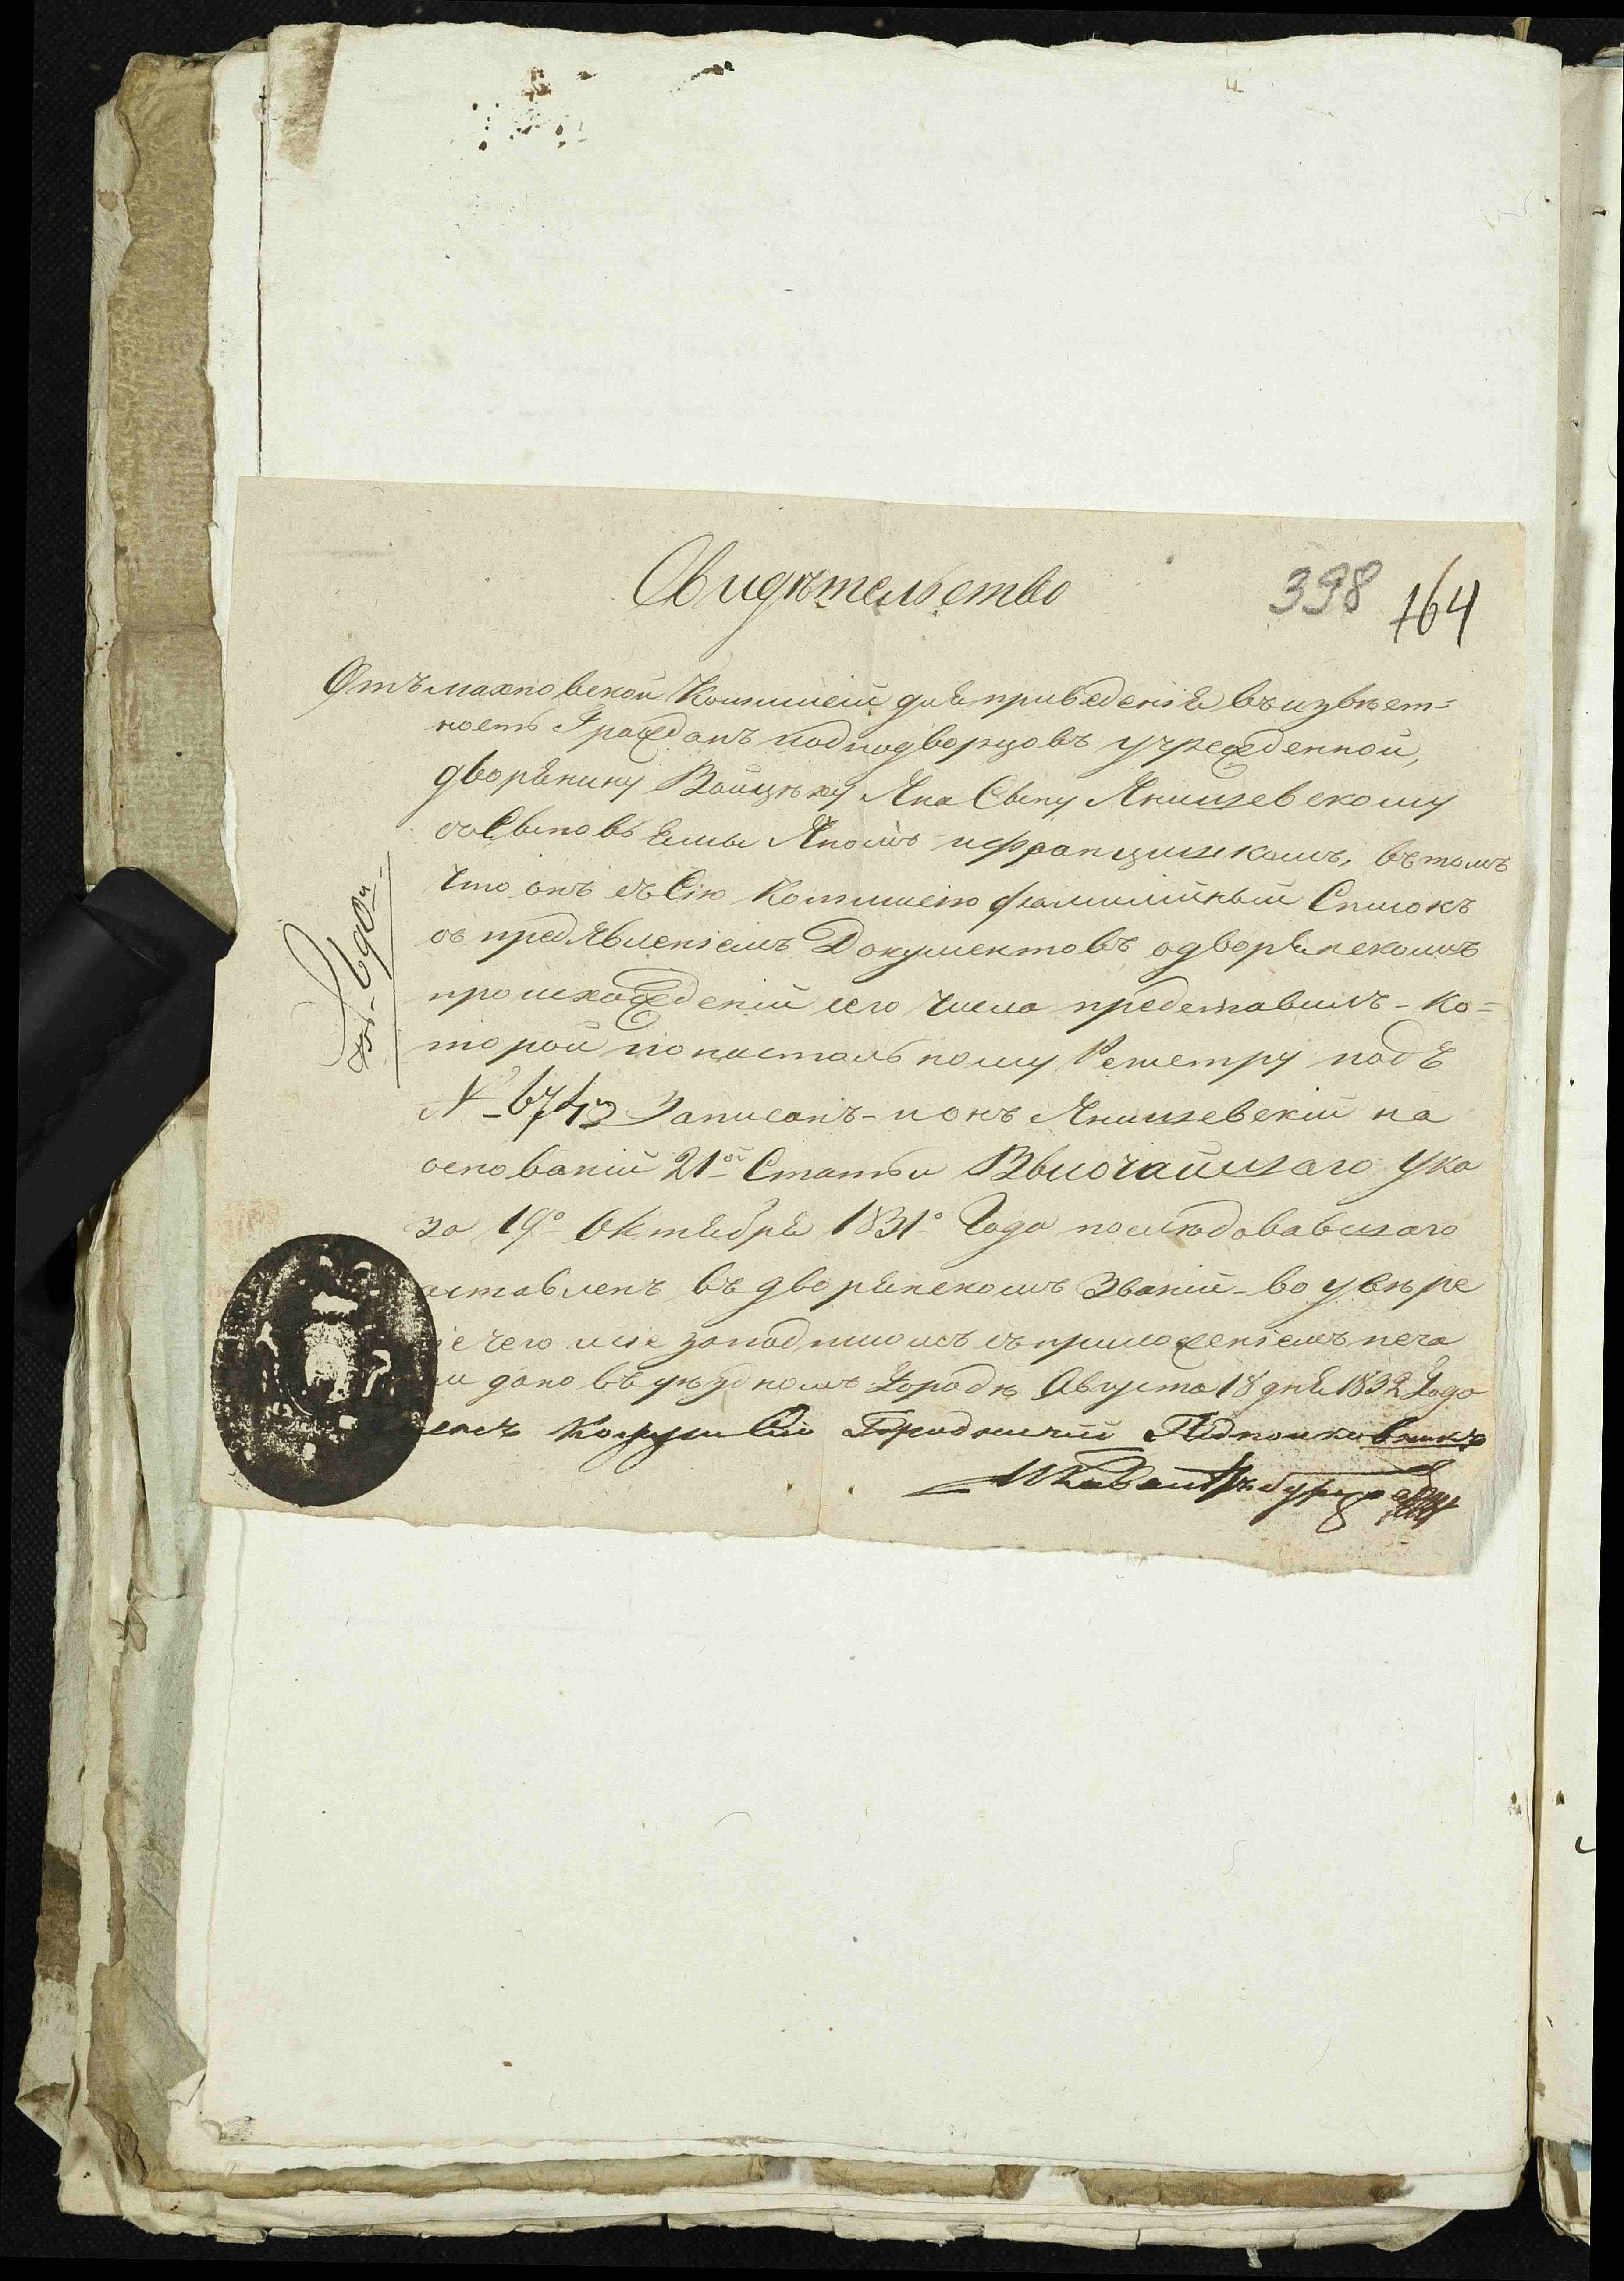 Свидѣтельство
398 164
Отъ махновской Коммисіи для приведенія въ извѣст=
ность Граждан и однодворцовъ учрежденной,
дворянину Войцѣху Яна Сыну Янишевскому
съ Сыновьями Яномъ и францишкомъ, въ томъ
что онъ въ Сію Коммисію фамилийный Списокъ
съ предъявленіемъ Документовъ о дворянскомъ
происхожденіи сего числа представилъ - ко=
торой по настольному Регестру подъ
№ 6743 Записанъ - и онъ Янишевскій на
основаніи 21ой Статьи Высочайшаго Ука
за 19о Октября 1831о Года послѣдовавшаго
оставленъ въ дворянскомъ Званіи - во увѣре
ніе чего мы за подписомъ съ приложеніемъ печа
ти дано въ уѣздномъ Городѣ Августа 18 дня 1832 Года
Членъ Сей Городничій Подполковникъ